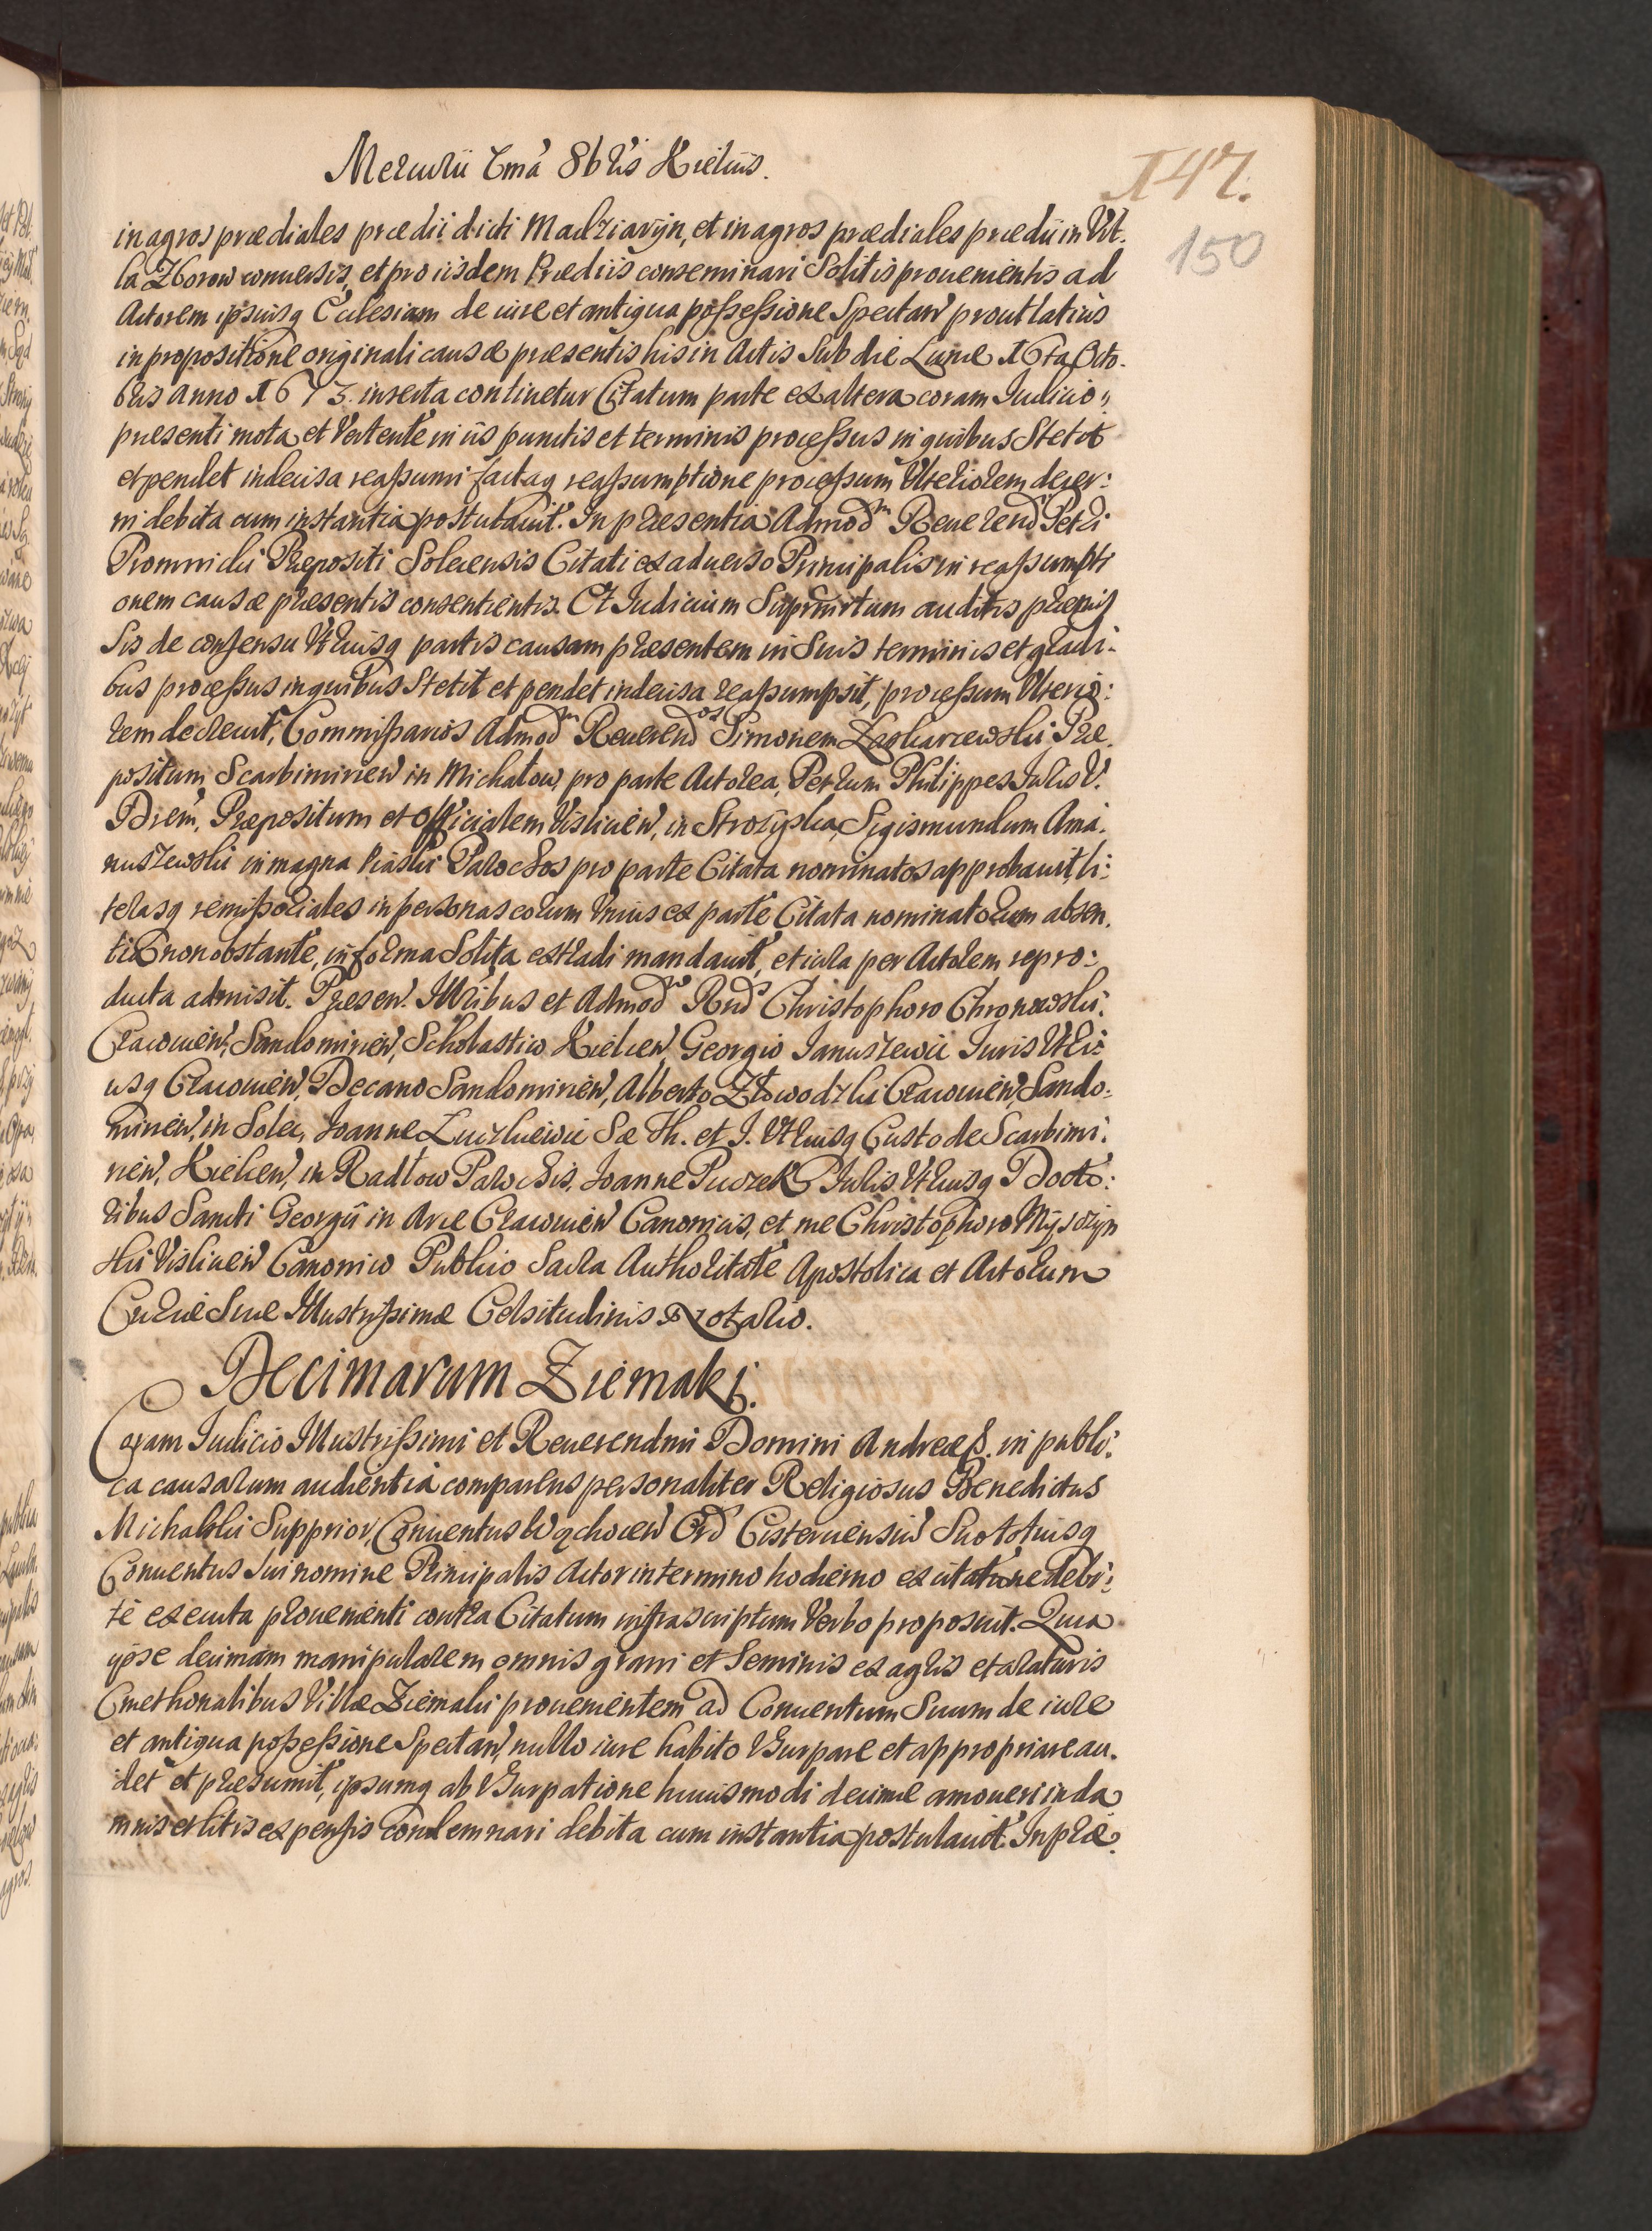 Mercurii 7ma 8bris Kielciis.
147.
150
in agros prædiales prædii dicti Madziaryn, et in agros prædiales prædii in Vil.
la Zborow conuersis, et pro iisdem Prædiis conseminari Solitis prouenientis ad
Actorem ipsiusq Ecclesiam de iure et antiqua possessione Spectan prout latius
in propositione originali causæ præsentis his in Actis Sub die Lunæ 16ta Octo.
bris Anno 1673. inserta continetur Citatum parte ex altera coram Iudicio
præsenti mota et Vertente in iis punctis et terminis processus in quibus Stetit
et pendet indecisa reassumi factaq reassumptione processum Vlteriorem decer:
ni debita cum instantia postulauit. In præsentia Admodm Reuerend Petri
Promnicki Præpositi Solecensis Citati ex aduerso Principalis in reassumpti
onem causæ præsentis consentientis. Et Iudicium auditis præmis
sis de consensu Vtriusq partis causam præsentem in Suis terminis et gradi:
bus processus in quibus Stetit et pendet indecisa reassumpsit, processum Vlterio:
rem decreuit, Commissarios Admodm Reuerendos Simonem Præ.
positum Scarbimirien in Michałow, pro parte Actorea, Petrum Philippes Iuris V.
Drem, Præpositum et Officialem Vislicien, in Strozyska, Sigismundum Ama:
nuszewski in magna Piaski Parochos pro parte Citata nominatos approbauit, li:
terasq remissoriales in personas eorum Vnius ex parte Citata nominatorum absen.
tia non obstante, in forma Solita extradi mandauit, et iura per Actorem repro:
ducta admisit. Præsen. Illribus et Admod Rnds Christophoro Chronowski:
Cracouien, Sandomirien, Scholastico Kielcen, Georgio Ianuszewic Iuris Vtri:
usq Cracouien, Decano Sandomirien, Alberto Złowodzki Cracouien, Sando:
mirien, in Solec, Ioanne Luczkiewic Sæ Th. et I. Vtriusq Custode Scarbimi:
rien, Kielcen, in Radłow Parochis, Ioanne Puczek Iuris Vtriusq Docto:
ribus Sancti Georgii in Arce Cracouien Canonicis, et me Christophoro
ski Vislicien Canonico Publico Sacra Authoritate Apostolica et Actorum
Curiæ Suæ Illustrissimæ Celsitudinis Notario.
Decimarum Ziemaki.
Coram Iudicio Illustrissimi et Reuerendmi Domini Andreæ S. in publi:
ca causarum audientia comparens personaliter Religiosus Benedictus
Michalski Supprior, Conuentus Wąchocen Ord Cisterciensiu Suo totiusq
Conuentus sui nomine Principalis Actor in termino hodierno ex citatione debi:
te executa prouenienti contra Citatum infrascriptum Verbo proposuit. Quia
ipse decimam manipularem omnis grani et Seminis ex agris et araturis
Cmethonalibus Villæ Ziemaki prouenientem ad Conuentum Suum de iure
et antiqua possessione Spectan, nullo iure habito Vsurpare et appropriare au.
det et præsumit, ipsumq ab Vsurpatione huiusmodi decimæ amoueri in da
mnis et litis expensis condemnari debita cum instantia postulauit. In præ.